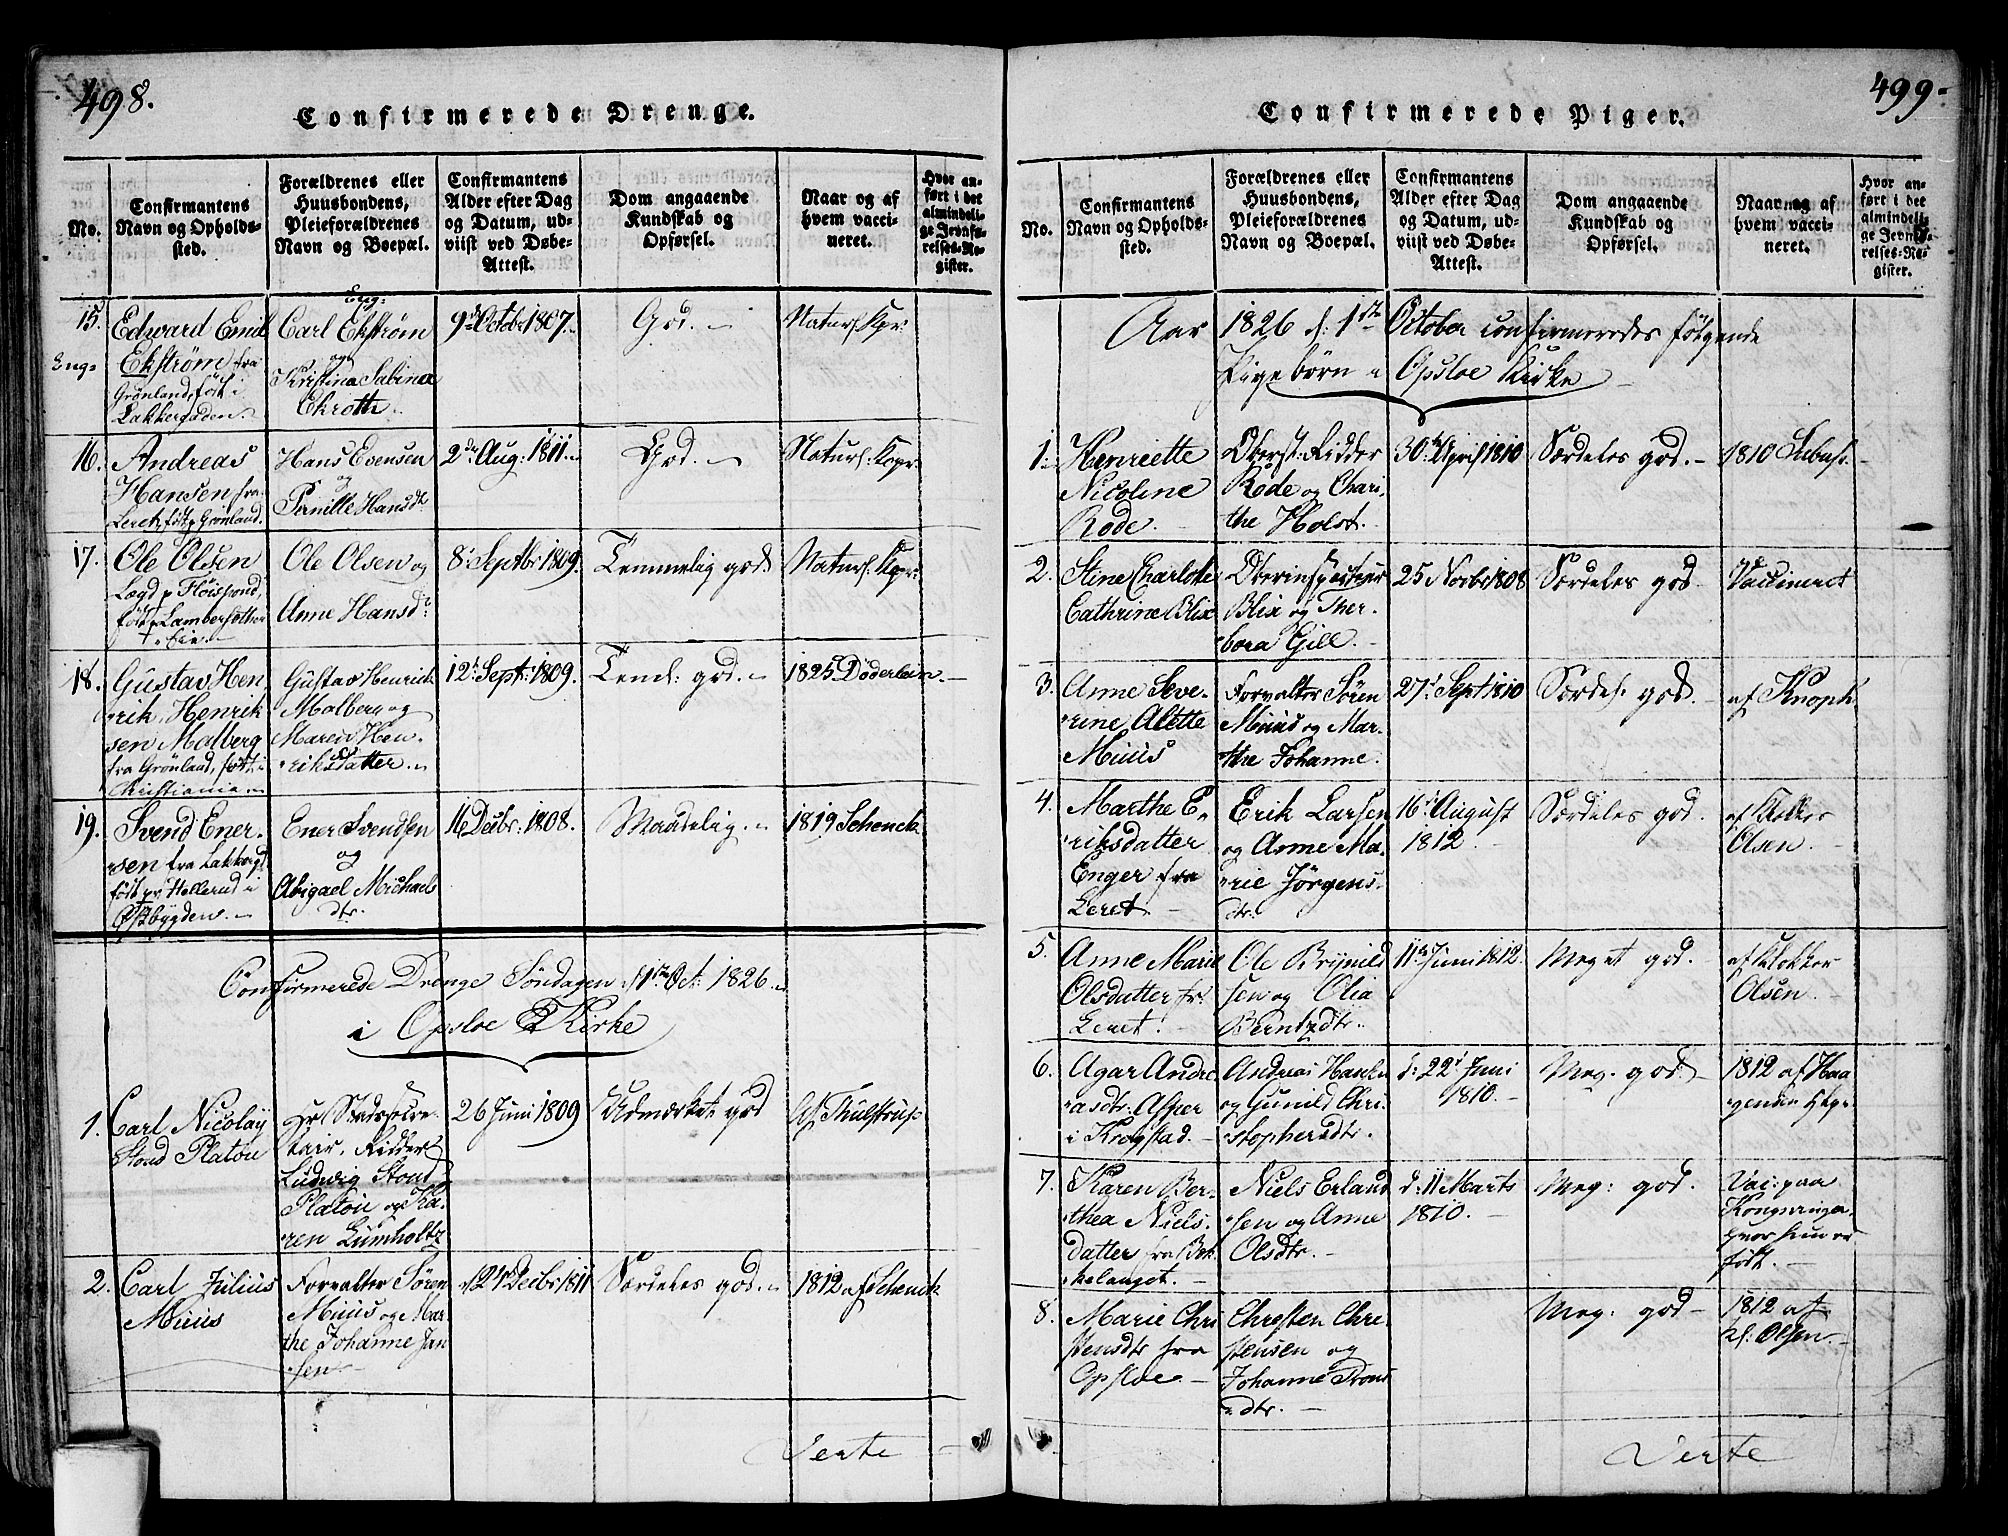 498.
Confirmerede Drenge.
No.
Confirmantens
Navn og Opholds-
sted.
Forældrenes eller
Huusbondens,
Pleieforældrenes
Navn og Boepæl.
Confirmantens
Alder efter Dag
og Datum, ud-
viist ved Døbe-
Attest.
Dom angaaende
Kundskab og
Opførsel.
Naar og af
hvem vacci-
neret.
Hvor an-
ført i det
almindeli-
ge Jevnfø-
relses-Re-
gister.
15.
Eng:
Edward Emil
Ekström fra
Grönland, föst i
Lakkergaden.
Eng:
Carl Ekström
og
Kristina Sabina
Ekroth.
9de Octobr 1807.
God.
Naturl: Kopr:
16.
Andreas
Hansen fra
Leret, föst p Grönland.
Hans Evensen
og
Pernille Hansdr
2den Aug: 1811.
God.
Naturl: Kopr:
17.
Ole Olsen
Lægd p
föst p
Eie.
Ole Olsen og
Anne Hansdr:
8 Septbr 1809.
Temmelig god
Naturl: Kopr:
18.
Gustav Hen
rik Henrik
sen Malberg
fra Grönland, föst i
Christiania.
Gustav Henrick
Malberg og
Maren Hen
riksdatter.
12t Sept: 1809.
Teml: god.
1825 Døderlein.
19.
Svend Ener
sen fra Lakkergd:
föst pr Hellerud i
Østbygden.
Ener Svendsen
og
Abigael Michaels
dtr.
16 Decbr: 1808.
Maadelig.
1819 Schenck.
Confirmerede Drenge Söndagen d 1ste Oct: 1826.
i Opsloe Kirke
1.
Carl Nicolay
Stoud Platou
Hr Stadssecre
tair, Ridder
Ludvig Stoud
Platou og Ka-
ren Lumholtz
26 Juni 1809
Udmærket god
Af Thulstrup
2.
Carl Julius
Muus
Forvalter Sören
Muus og Mar
the Johanne Jan
sen.
Decbr 1811
Særdeles god.
1812 af Schenck
Verte
499.
Confirmerede Piger.
No.
Confirmantens
Navn og Opholds-
sted.
Forældrenes eller
Huusbondens,
Pleieforældrenes
Navn og Boepæl.
Confirmantens
Alder efter Dag
og Datum, ud-
viist ved Døbe-
Attest.
Dom angaaende
Kundskab og
Opførsel.
Naar og af
hvem vacci-
neret.
Hvor an-
ført i det
almindeli-
ge Jevnfø-
relses-Re-
gister.
Aar 1826 d: 1ste October confirmeredes følgende
Pigebörn i Opsloe Kirke
1.
Henriette
Nicoline
Rode.
Oberst: Ridder
Rode og Chari-
the Holst.
30te April 1810
Særdeles god.
1810
2.
Stine Charlotte
Cathrine Blix
Oberinspecteur
Blix og Ther-
bora Gill.
25 Novbr 1808
Særdeles god.
Vaccineret
3.
Anne Seve-
rine Alette
Muus
Forvalter Sören
Muus og Mar-
the Johanne.
27t Sept 1810
Særdel: god.
af Knoph
4.
Marthe E-
riksdatter
Enger fra
Leret.
Erik Larsen
og Anne Ma-
rie Jörgens.
dtr:
16t August
1812.
Særdeles god.
af Klokker
Olsen.
5.
Anne Marie
Olsdatter fr:
Leret.
Ole Brynild
sen og Olia
Berntzdtr.
11te Juni 1812.
Meget god.
af Klokker
Olsen.
6.
Agar Andre
asdtr: Asper
i Krogstad.
Andreas
og Gunild Chri
stophersdtr.
d: 22t Juni
1810.
Meg. god.
1812 af Haa
7.
Karen Ber-
thea Niels.
datter fra
Niels Erland
sen og Anne
Olsdtr.
d: 11 Marts
1810.
Meg: god.
Vac: paa
Kongsvinger,
hvor hun er
født.
8.
Marie Chri
stensdtr fra
Opsloe.
Chresten Chre
stensen og
Johanne Trons
dtr.
Meg: god
1812 af
kl: Olsen.
Verte